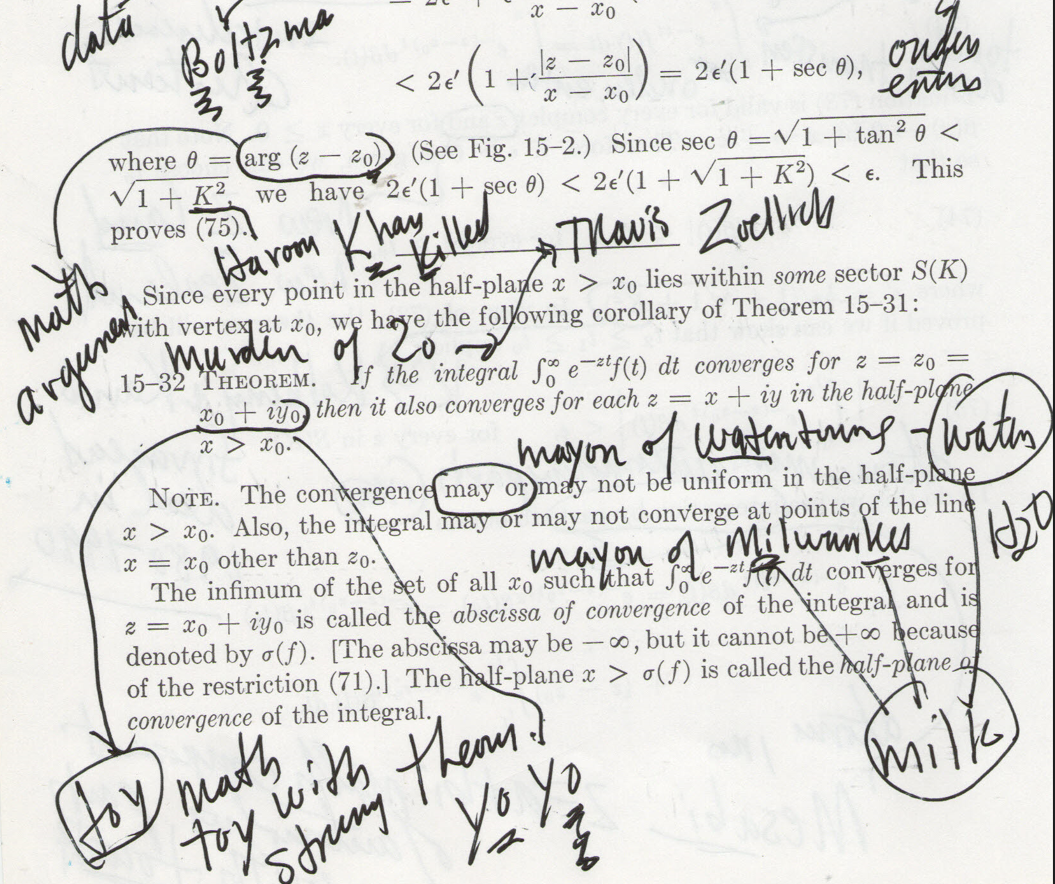 data
Boltzma
x − x₀
< 2ε′ (1 + |z − z₀| / x − x₀) = 2ε′(1 + sec θ),
orders
enters
where θ = arg (z − z₀). (See Fig. 15–2.) Since sec θ = √1 + tan² θ <
√1 + K², we have 2ε′(1 + sec θ) < 2ε′(1 + √1 + K²) < ε. This
proves (75).
Haroon Khan
Killed
Travis Zoellick
math
argument
Since every point in the half-plane x > x₀ lies within some sector S(K)
with vertex at x₀, we have the following corollary of Theorem 15–31:
murder of Zo
15–32 THEOREM. If the integral ∫₀^∞ e^−zt f(t) dt converges for z = z₀ =
x₀ + iy₀, then it also converges for each z = x + iy in the half-plane
x > x₀.
mayor of watertown – water
NOTE. The convergence may or may not be uniform in the half-plane
x > x₀. Also, the integral may or may not converge at points of the line
H2O
x = x₀ other than z₀.
mayor of Milwaukee
The infimum of the set of all x₀ such that ∫₀^∞ e^−zt f(t) dt converges for
z = x₀ + iy₀ is called the abscissa of convergence of the integral and is
denoted by σ(f). [The abscissa may be −∞, but it cannot be +∞ because
of the restriction (71).] The half-plane x > σ(f) is called the half-plane of
convergence of the integral.
milk
toy
math theory
toy with
string
yo yo